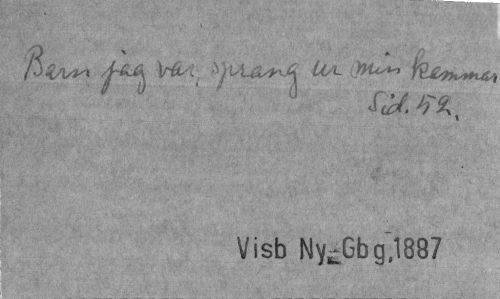 Barn jag var, sprang ur min kammar
Sid. 52.
Visb Ny-Gbg,1887